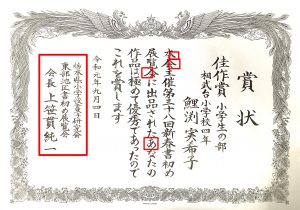 賞状
佳作賞 小学生の部
相武台小学校四年
鯉渕 実布子
本会主催第三十八回新春書初め
展覧会に出品されたあなたの
作品は極めて優秀であったので
これを賞します
令和元年九月四日
東部地区書初め展覧会
会長 上笹貫純一